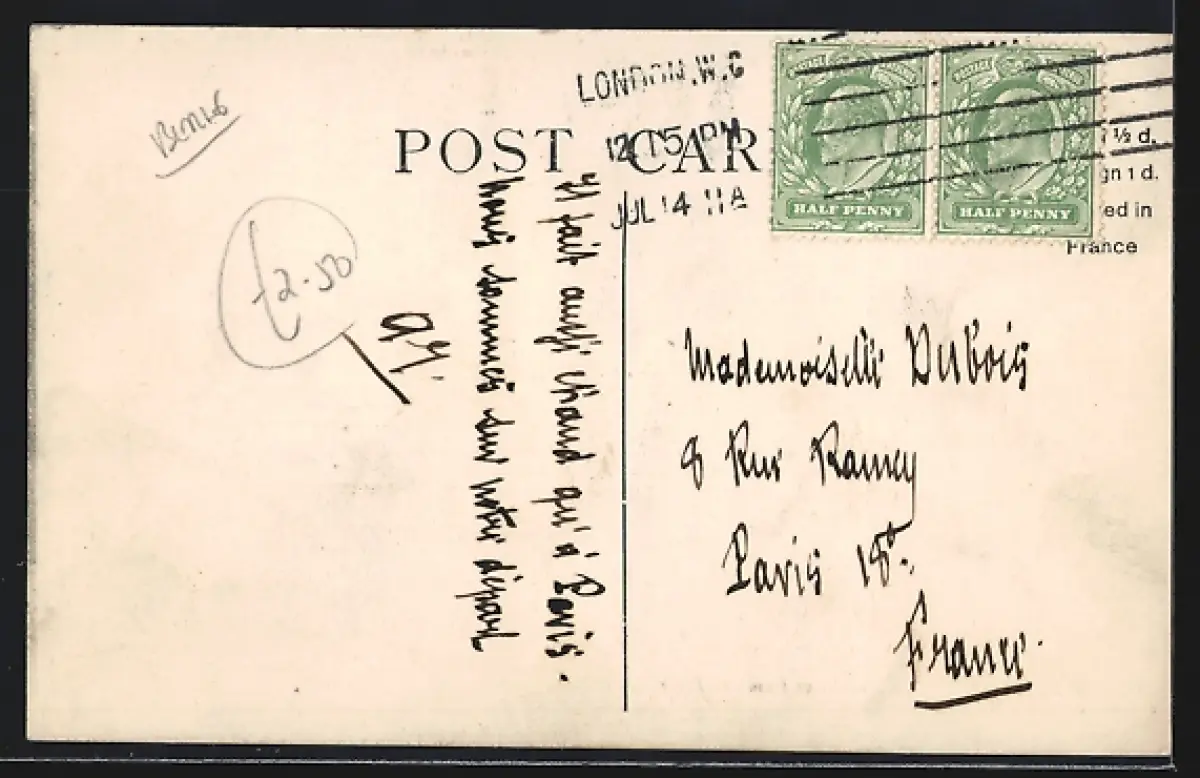 LONDON.W.C
12 15 PM
JUL 14 11A
POST CAR
HALF PENNY
HALF PENNY
½ d.
gn 1 d.
ed in
France
£2-50
Il fait aussi chaud qu'à Paris.
Nous sommes sur notre départ
Mademoiselle Dubois
8 Rue Ramey
Paris 18e.
France.